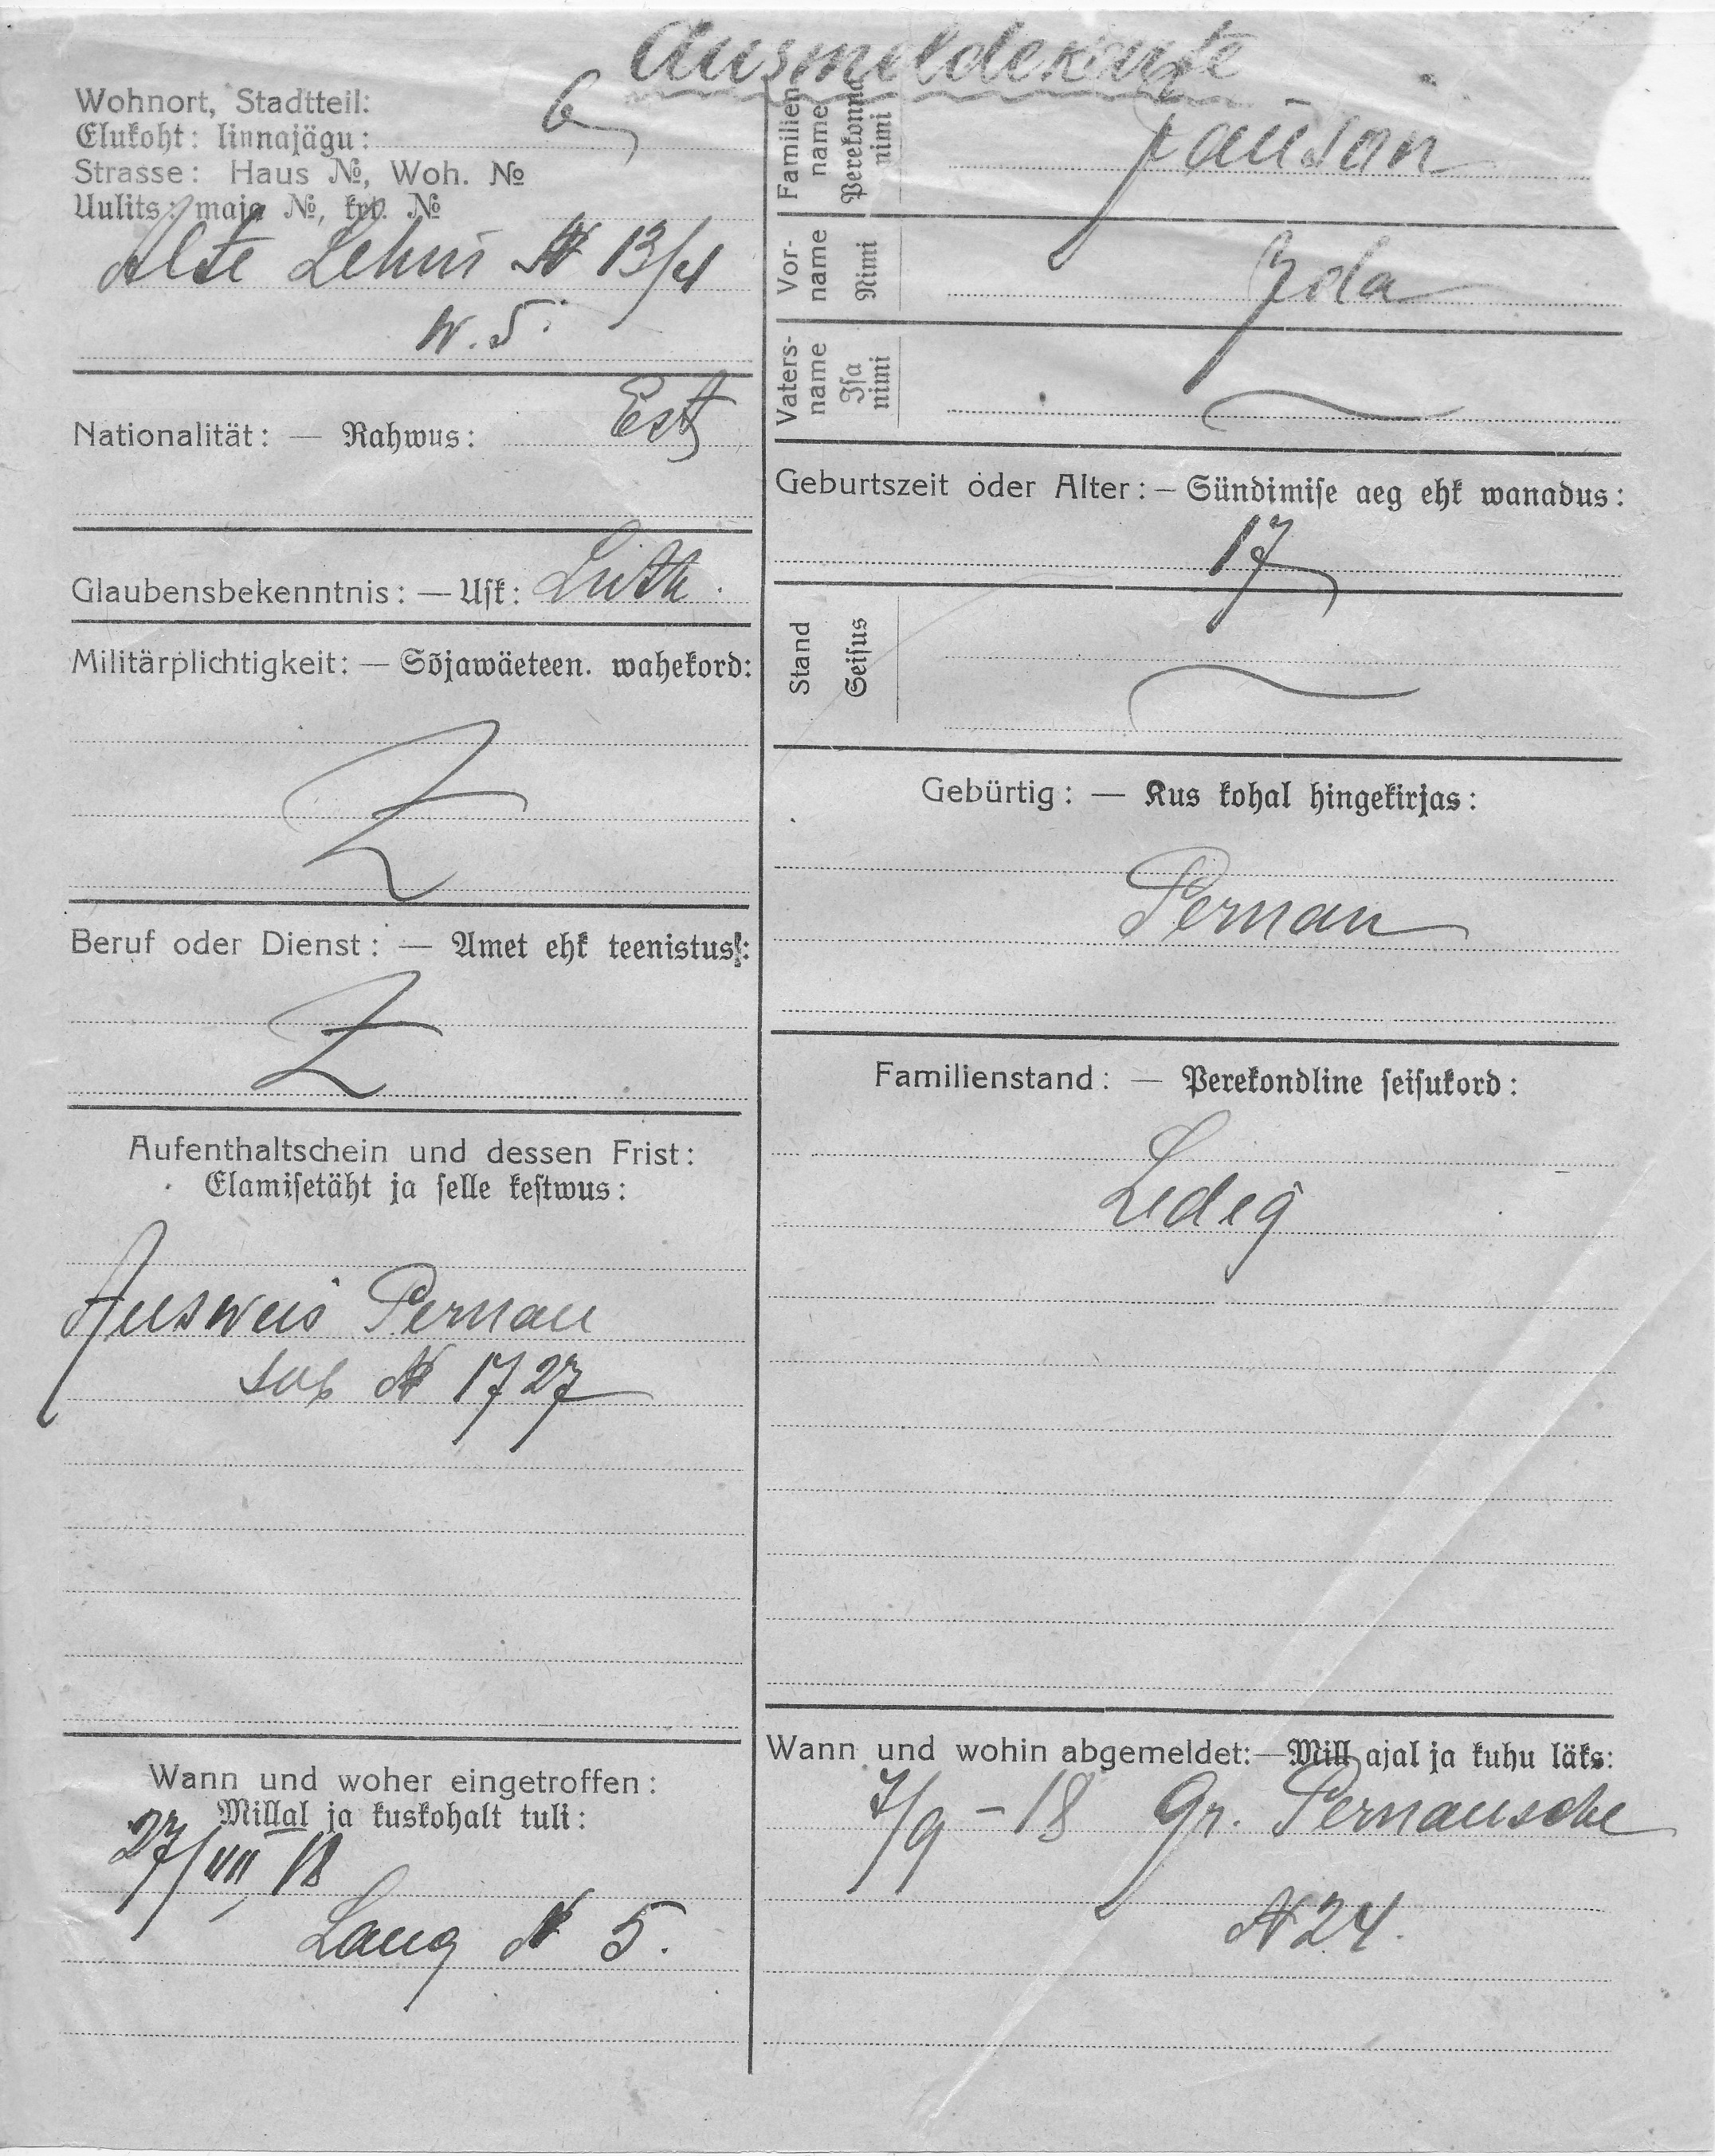 Ausmeldekarte
Wohnort, Stadtteil:
Elukoht: linnajägu: 6
Strasse: Haus №, Woh. №
Uulits: maja №, krt. №
Alte Lehm № 13/4
W. 5.
Nationalität: — Rahwus: Est
Glaubensbekenntnis: — Usk: Luth.
Militärplichtigkeit: — Sõjawäeteen. wahekord:
Beruf oder Dienst: — Amet ehk teenistus:
Aufenthaltschein und dessen Frist:
Elamisetäht ja selle kestwus:
Ausweis Pernau
sub № 1727
Wann und woher eingetroffen:
Millal ja kuskohalt tuli:
27/VIII 18
Lang № 5.
Familienname
Perekonna nimi
Jauson
Vorname
Nimi
Ida
Vatersname
Isa nimi
Geburtszeit oder Alter: — Sündimise aeg ehk wanadus:
17
Stand
Seisus
Gebürtig: — Kus kohal hingekirjas:
Pernau
Familienstand: — Perekondline seisukord:
Ledig
Wann und wohin abgemeldet: — Mill ajal ja kuhu läks:
7/9 - 18 Gr. Pernausche
№ 24.